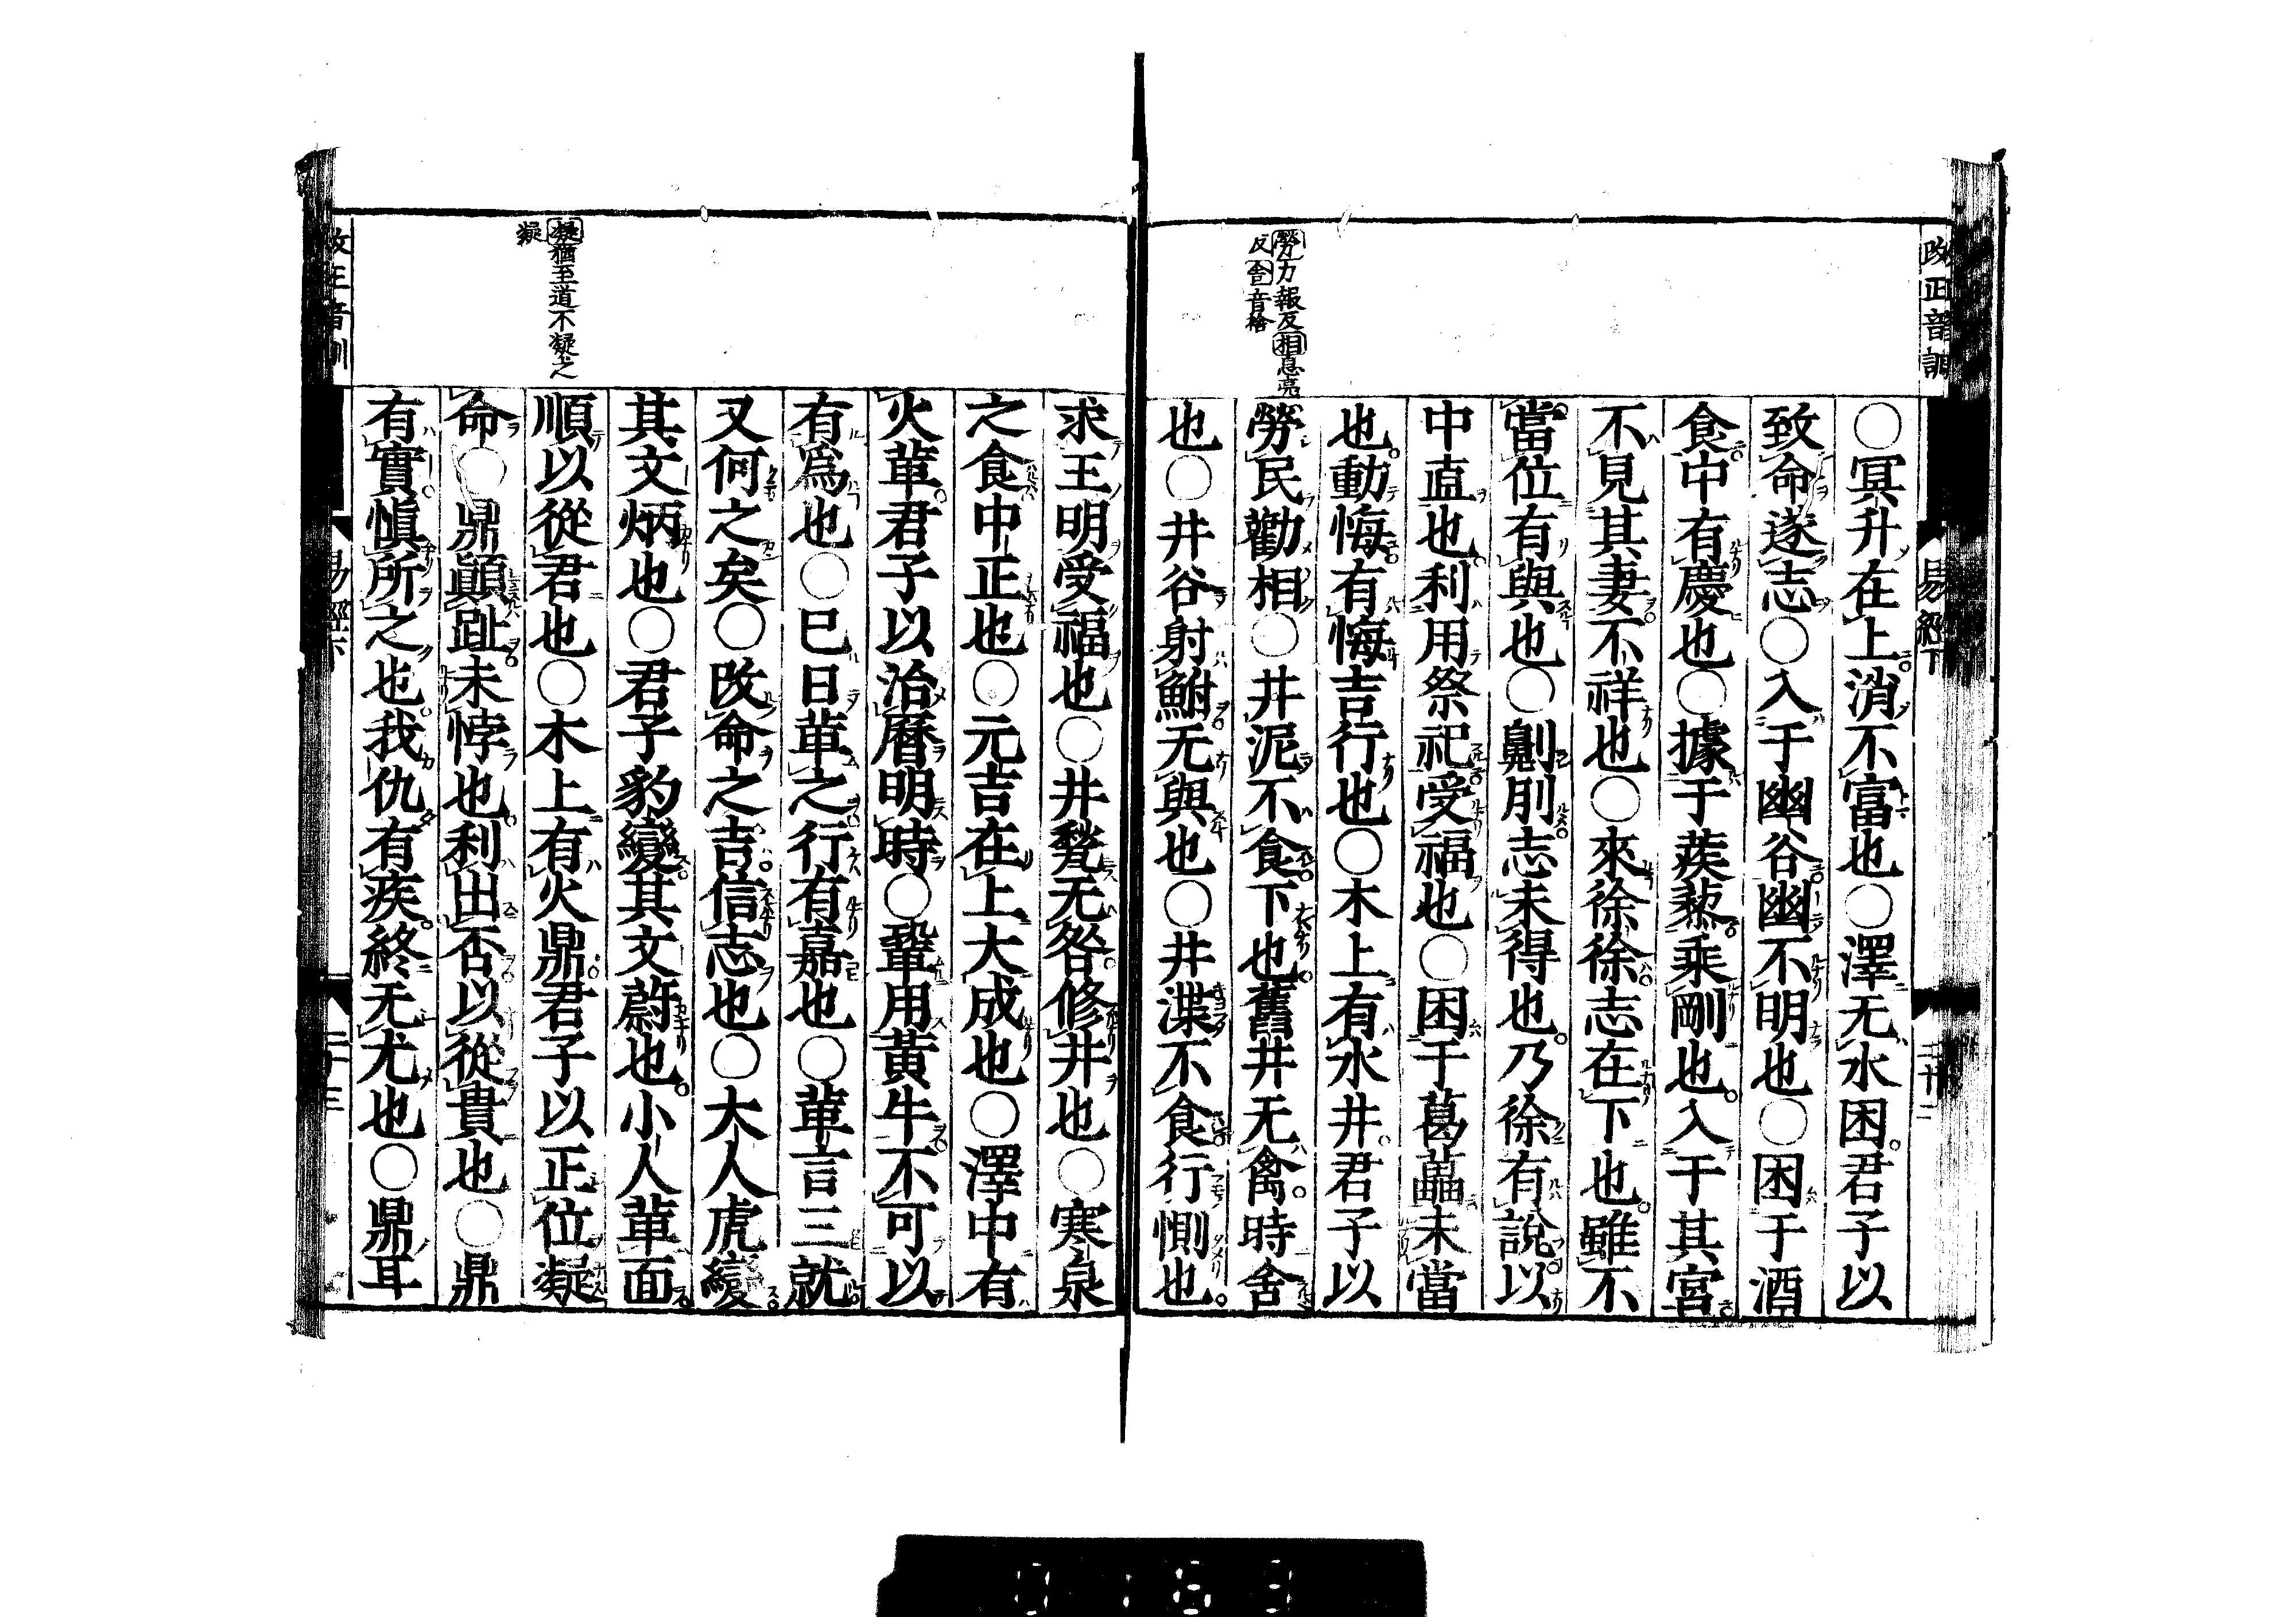 改正音訓
易經下
二十二
勞力報反相息亮
反舍音捨
○冥升在上消不富也○澤无水困君子以
致命遂志○入于幽谷幽不明也○困于酒
食中有慶也○據于蒺蔾乘剛也入于其宮
不見其妻不祥也○來徐徐志在下也雖不
當位有與也○劓刖志未得也乃徐有說以
中直也利用祭祀受福也○困于葛藟未當
也動悔有悔吉行也○木上有水井君子以
勞民勸相○井泥不食下也舊井无禽時舍
也○井谷射鮒无與也○井渫不食行惻也
求王明受福也○井甃无咎修井也○寒泉
之食中正也○元吉在上大成也○澤中有
火革君子以治曆明時○鞏用黃牛不可以
有爲也○已日革之行有嘉也○革言三就
又何之矣○改命之吉信志也○大人虎變
其文炳也○君子豹變其文蔚也小人革面
順以從君也○木上有火鼎君子以正位凝
命○鼎顚趾未悖也利出否以從貴也○鼎
有實愼所之也我仇有疾終无尤也○鼎耳
凝猶至道不凝之
凝
改正音訓
易經下
二十三